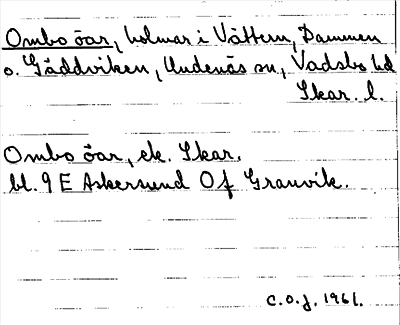 Ombo öar, holmar i Vättern, Dammen
o. Gäddviken, Undenäs sn, Vadsbo hd
Skar. l.
Ombo öar, ek. Skar.
bl. 9 E Askersund Of Granvik.
C.O.J. 1961.